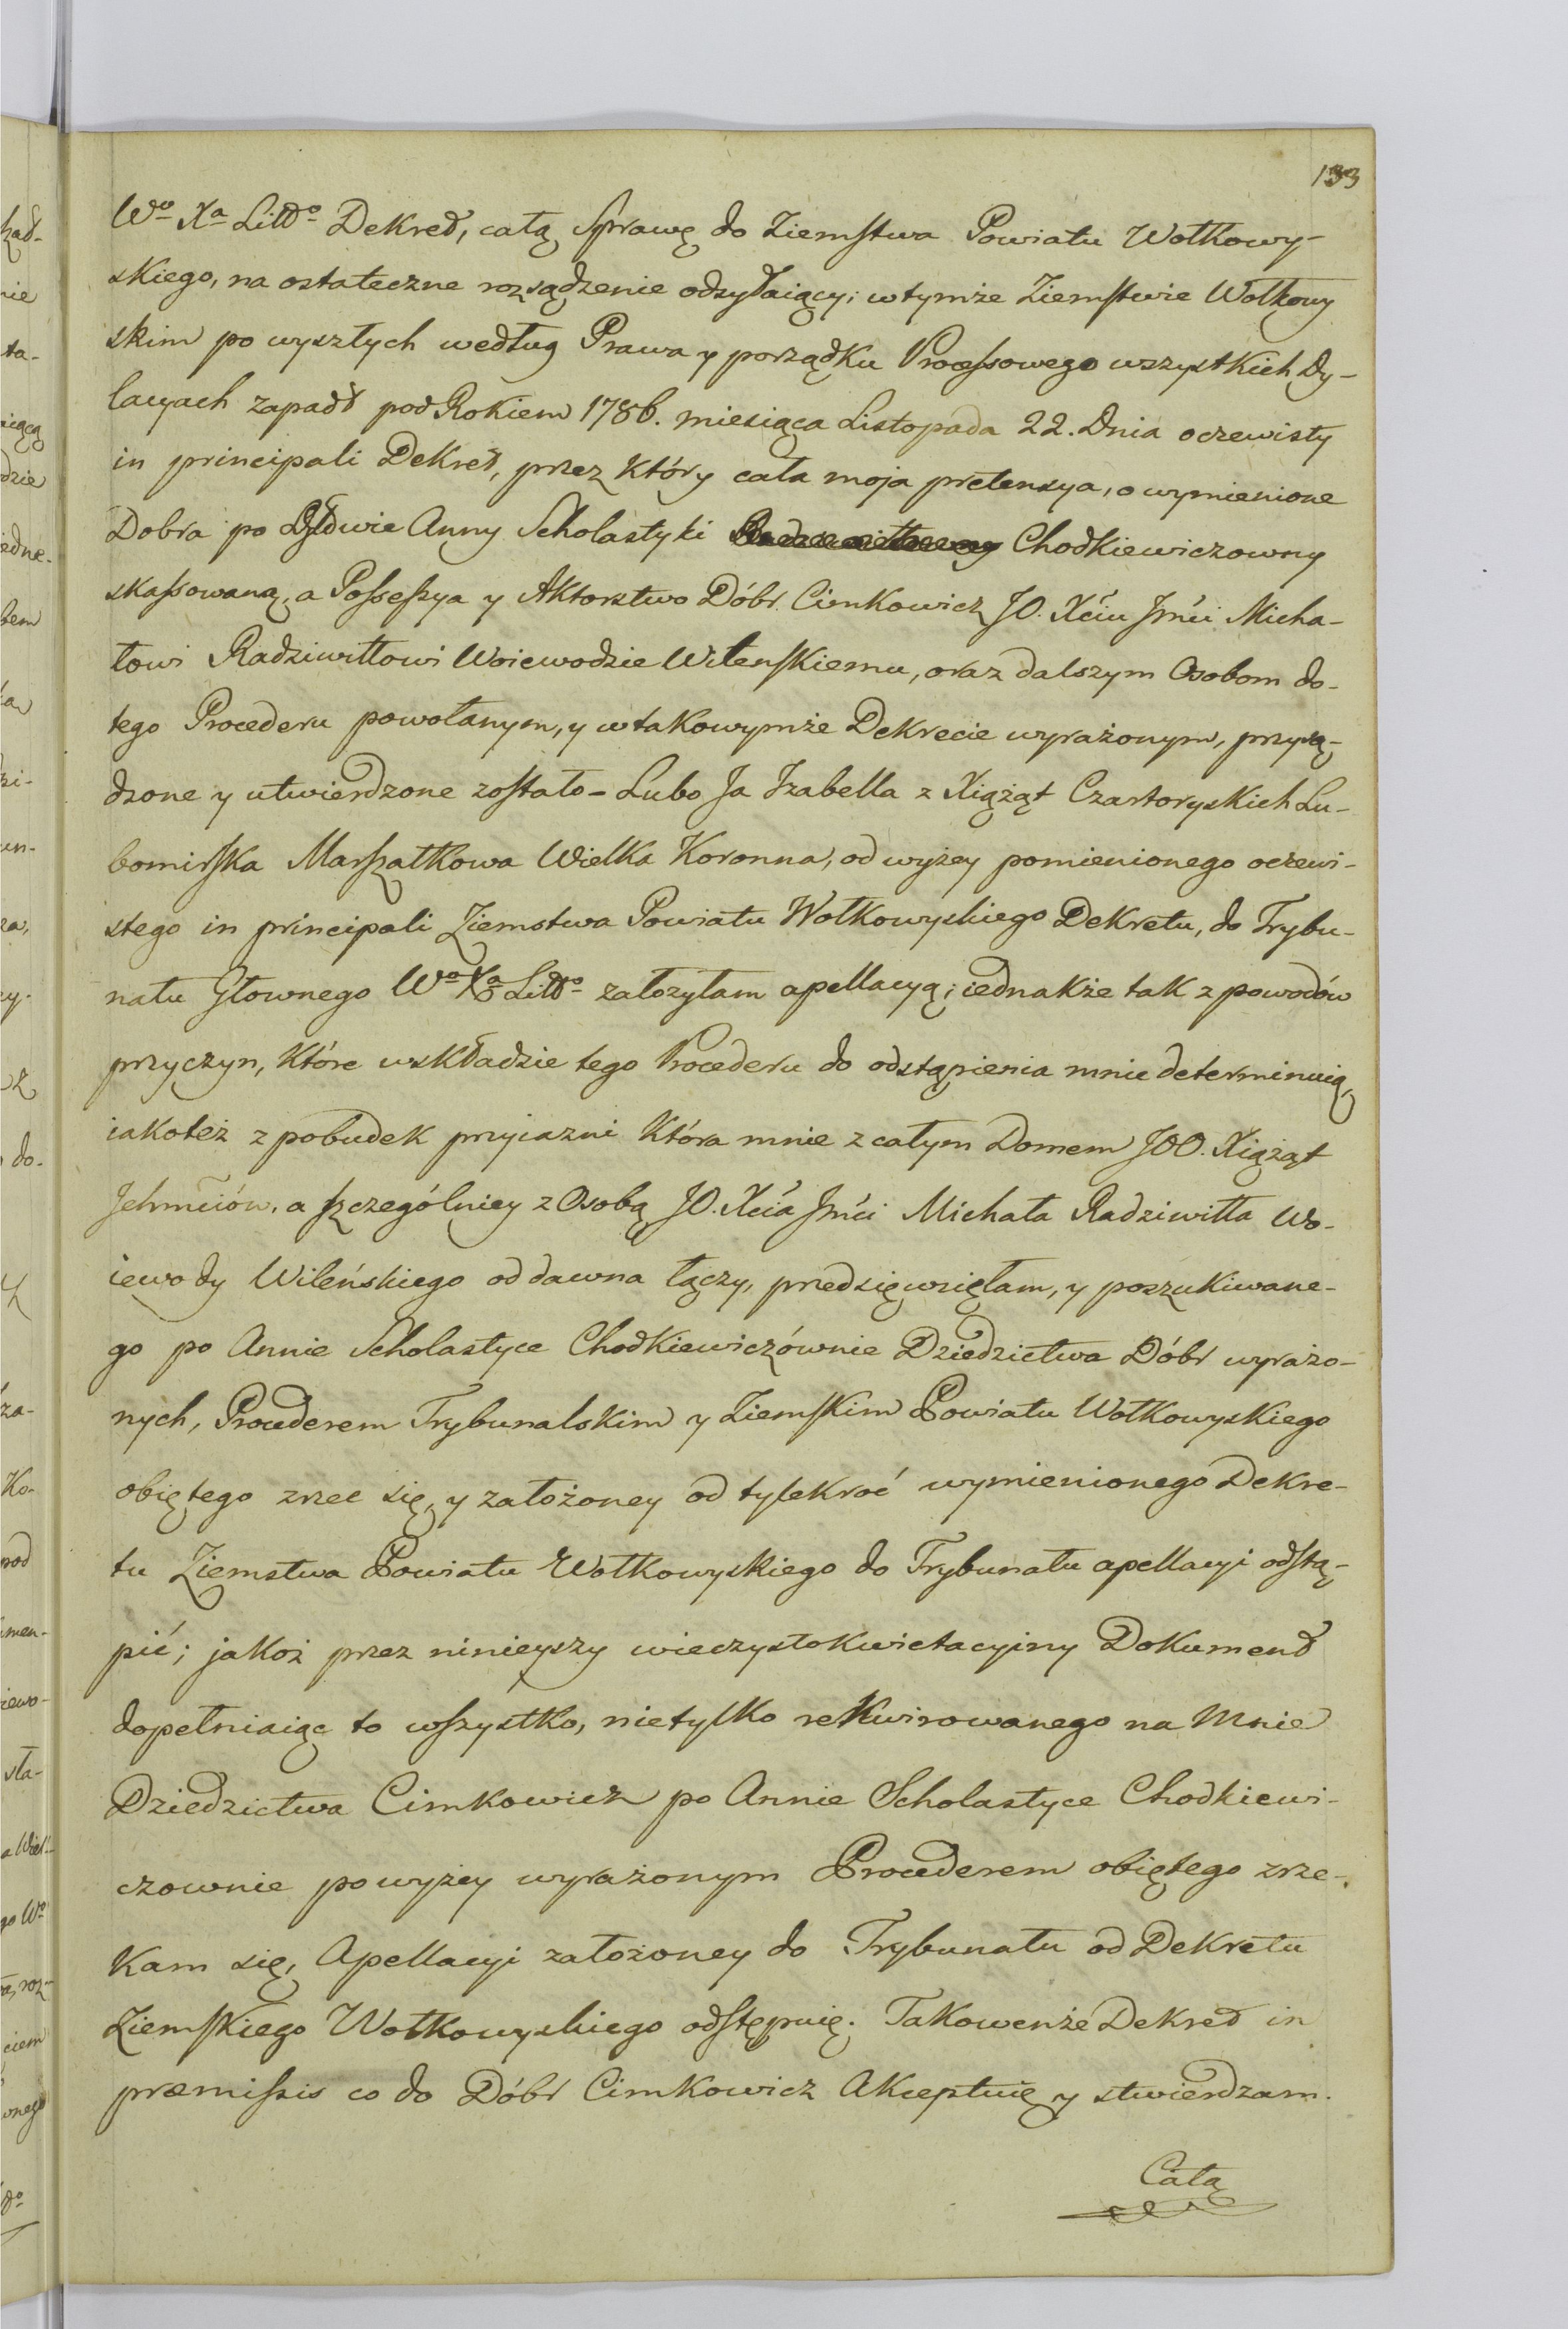 133
Wo Xa Littgo Dekret, całą Sprawę do Ziemstwa Powiatu Wołkowy-
skiego, na ostateczne rozsądzenie odsyłaiący; w tymże Ziemstwie Wołkowy
skim po wyszłych według Prawa y porządku Processowego wszystkich Dy-
lacyach zapadł pod Rokiem 1786. miesiąca Listopada 22. Dnia oczewisty
in principali Dekret, przez który cała moja pretensya, o wymienione
Dobra po Wdowie Anny Scholastyki Chodkiewiczowny
skassowaną, a Possessya y Aktorstwo Dóbr Cimkowicz JO. Xciu Jmci Micha-
łowi Radziwiłłowi Woiewodzie Wilenskiemu, oraz dalszym Osobom do-
tego Procederu powołanym, y w takowymże Dekrecie wyrażonym, przysą-
dzone y utwierdzone zostało – Lubo Ja Izabella z Xiążąt Czartoryskich Lu-
bomirska Marszałkowa Wielka Koronna, od wyżey pomienionego oczewi-
stego in principali Ziemstwa Powiatu Wołkowyskiego Dekretu, do Trybu-
nału Głownego Wo Xa Littgo założyłam apellacyą; iednakże tak z powodów
przyczyn, które w składzie tego Procederu do odstąpienia mnie determinuią,
iakoteż z pobudek przyiazni która mnie z całym Domem JOO. Xiążąt
Jchmciów, a szczególniey z Osobą JO. Xcia Jmci Michała Radziwiłła Wo-
iewody Wileńskiego oddawna łączy, przedsięwzięłam, y poszukiwane-
go po Annie Scholastyce Chodkiewiczównie Dziedzictwa Dóbr wyrażo-
nych, Procederem Trybunalskim y Ziemskim Powiatu Wołkowyskiego
obiętego zrzec się, y założoney od tylekroć wymienionego Dekre-
tu Ziemstwa Powiatu Wołkowyskiego do Trybunału apellacyi odstą-
pić; jakoż przez ninieyszy wieczystokwietacyjny Dokument
dopełniaiąc to wszystko, nietylko rekwirowanego na Mnie
Dziedzictwa Cimkowicz po Annie Scholastyce Chodkiewi-
czownie powyżey wyrażonym Procederem obiętego zrze-
kam się, Apellacyi założoney do Trybunału od Dekretu
Ziemskiego Wołkowyskiego odstępuię. Takowenże Dekret in
præmissis co do Dóbr Cimkowicz Akceptuię y stwierdzam.
Całą